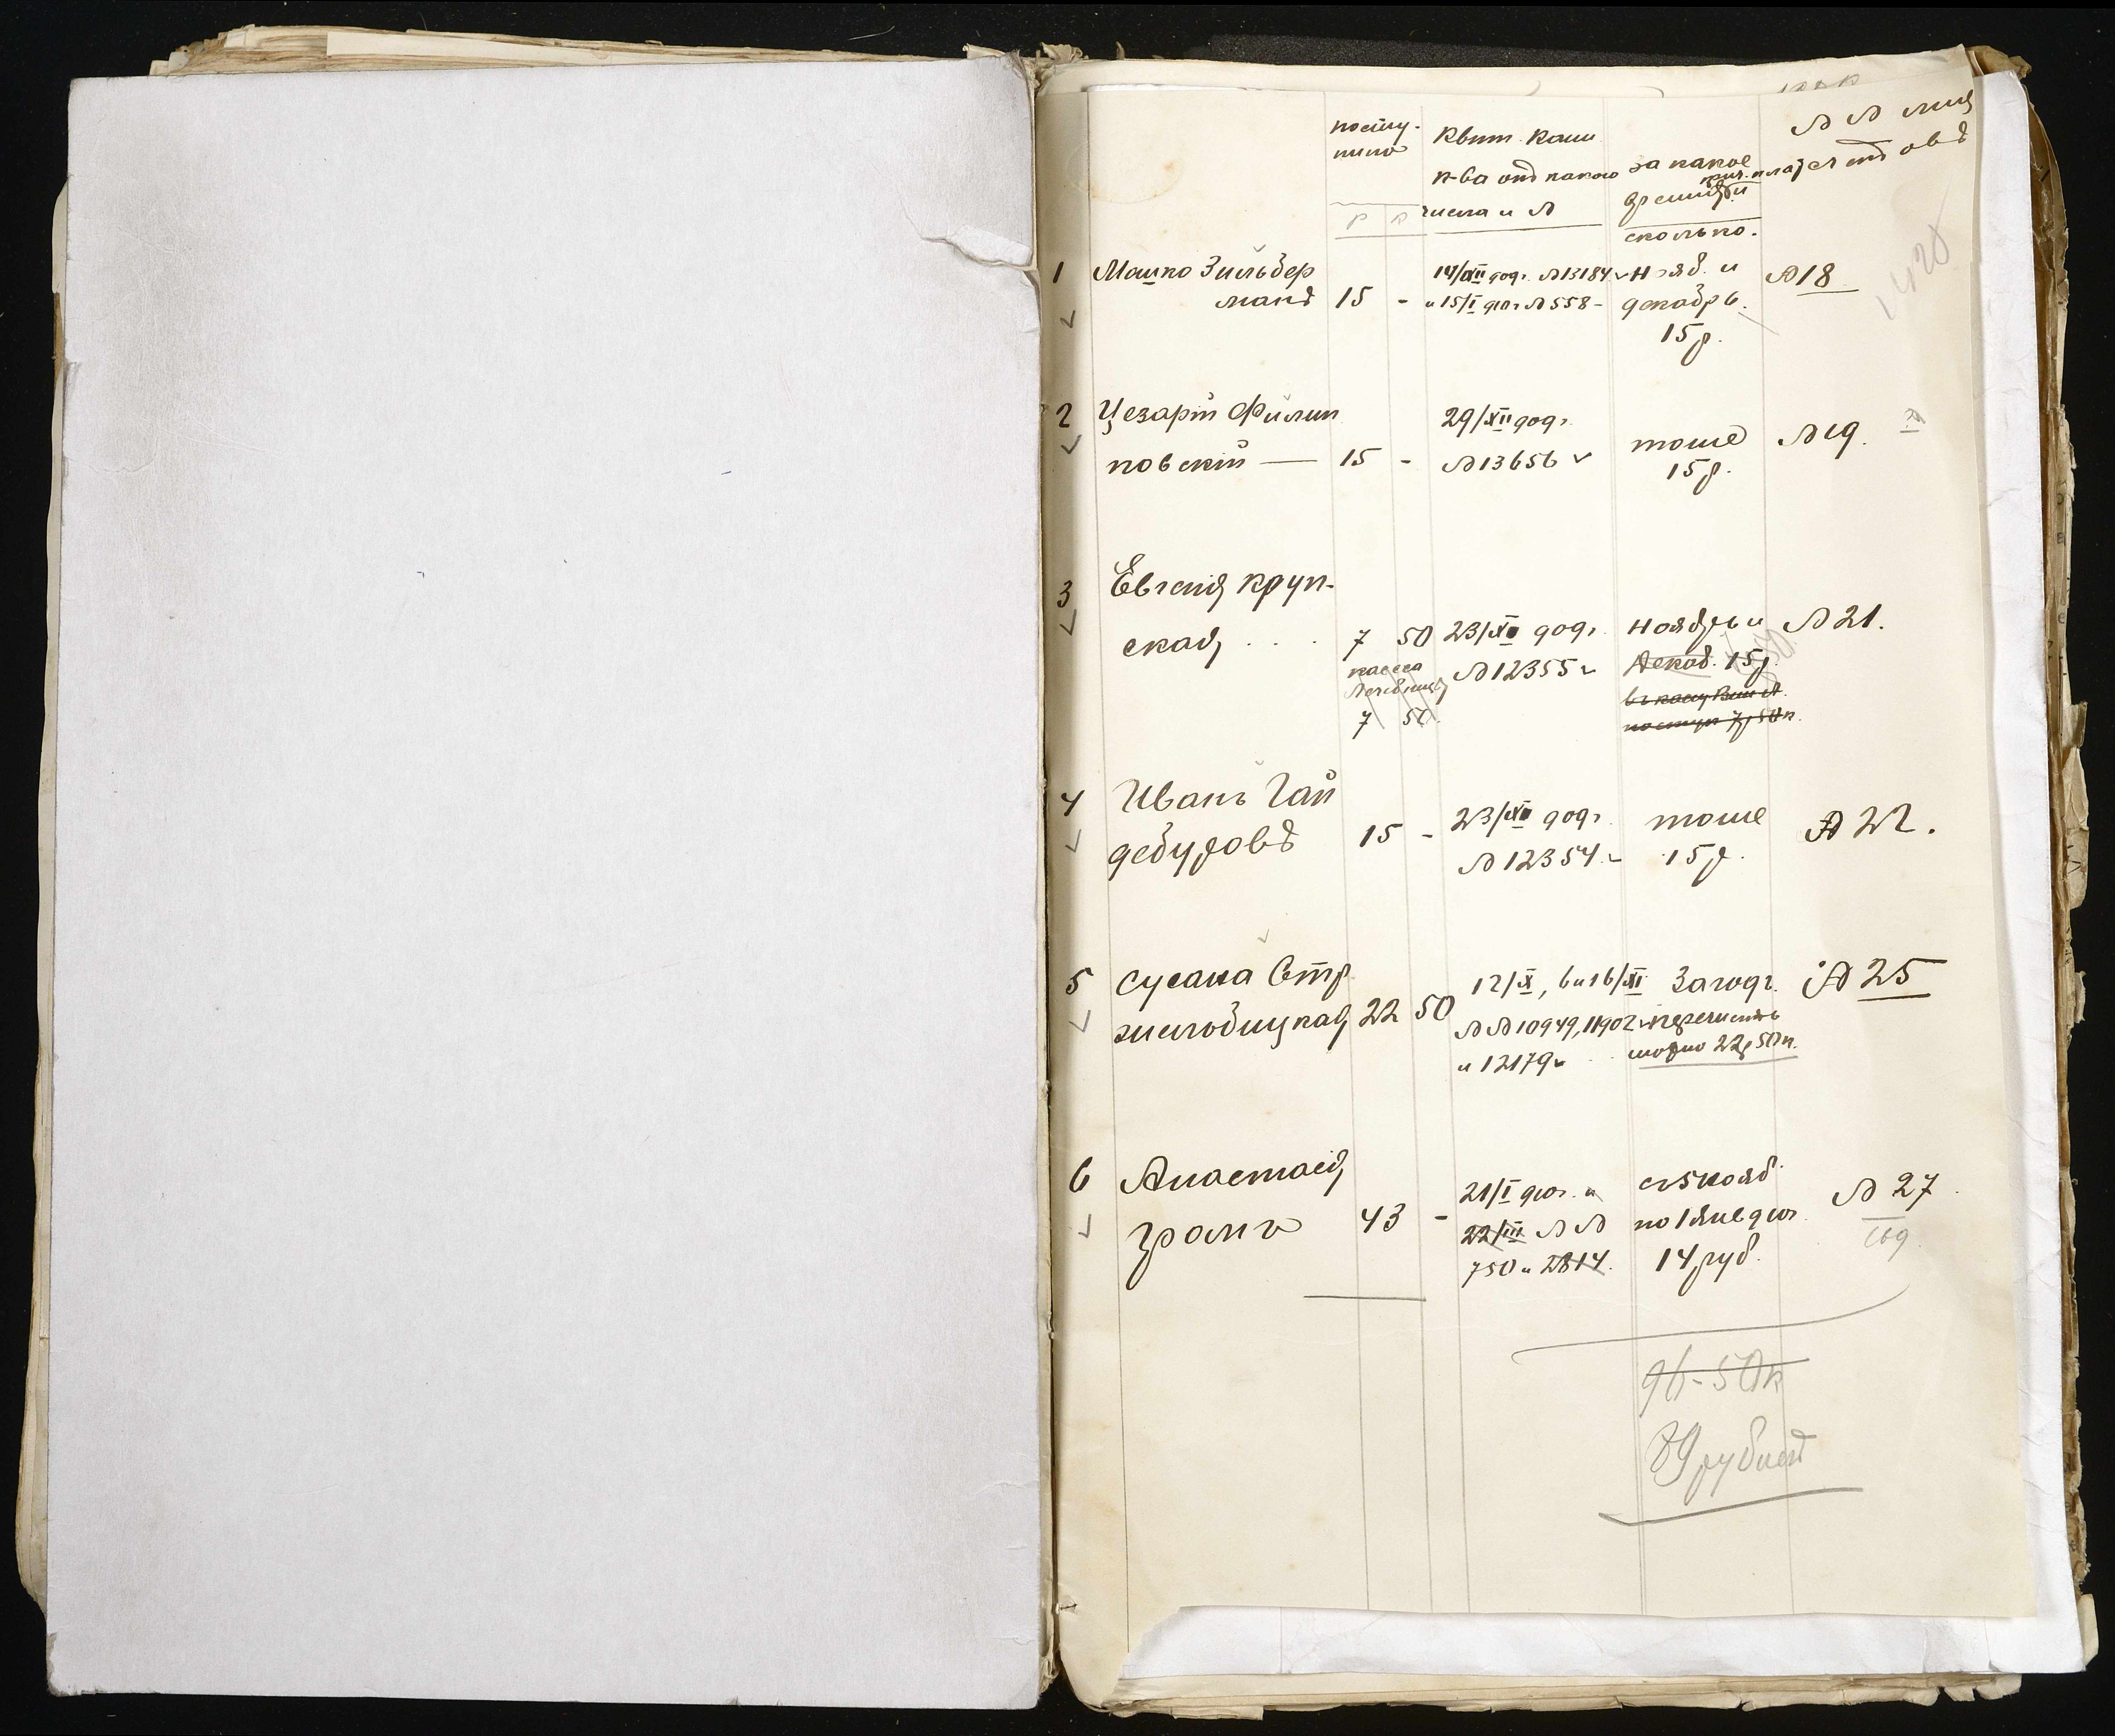 посту-
пило
Р К
Квит. Казн
к-ва отъ какого
числа и №
за какое
время и
сколько.
№№ лиц
1 Мошко Зильбер
манъ 15 -
14/XII 909г. №13184
и 15/I 910г №558 -
Нояб. и
декабрь.
15 р.
№18
2 Цезарій Филип
повскій — 15 -
29/XII 909г.
№13656
тоже
15 р.
№19.
3 Евгенія Круп-
ская . . . 7 50
касса
Лечебницы
7 50.
23/XI 909г.
№12355
Ноябрь и
Декаб. 15р.
поступ 7р 50к.
№21.
4 Иванъ Гай
дебуровъ 15 -
23/XI 909г.
№12354.
тоже
15 р.
№22.
5 Сусана Стр
жельбицкая 22 50
12/X, 6 и 16/XI
№№10949, 11902
и 12179
За годъ.
перечислить
можно 22р 50к.
№25
6 Анастасія
Громъ 43 -
21/I 910г. и
22/III №№
750 и 2814.
съ 5 нояб.
по 1 янв 910г.
14 руб.
№27
96-50к
89 рублей